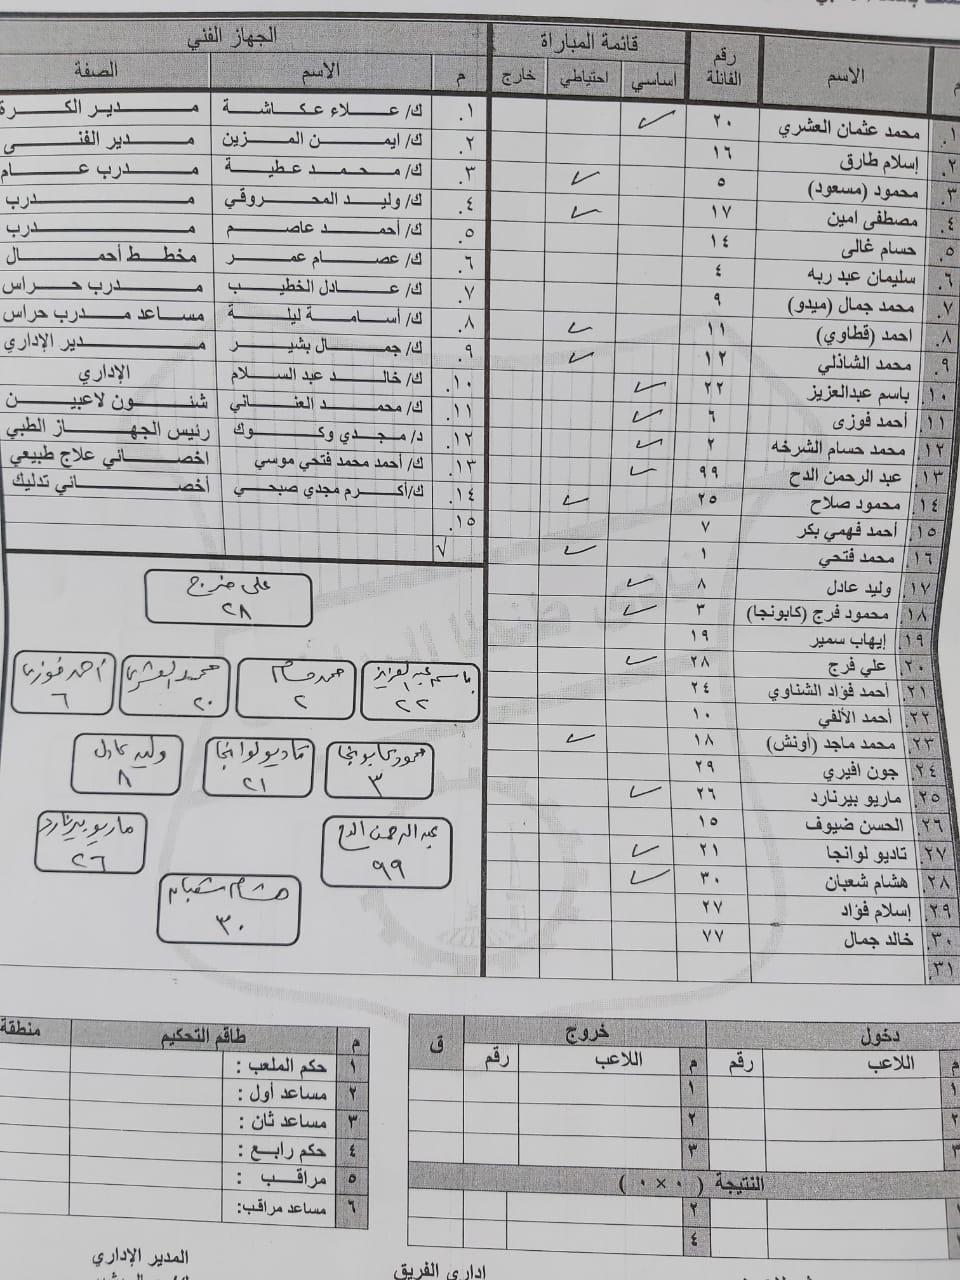 م الاسم رقم الفانلة قائمة المباراة
اساسي احتياطي خارج
١. محمد عثمان العشري ٢٠ ✓
٢. إسلام طارق ١٦
٣. محمود (مسعود) ٥ ✓
٤. مصطفى امين ١٧ ✓
٥. حسام غالى ١٤
٦. سليمان عبد ربه ٤
٧. محمد جمال (ميدو) ٩
٨. احمد (قطاوي) ١١ ✓
٩. محمد الشاذلي ١٢ ✓
١٠. باسم عبدالعزيز ٢٢ ✓
١١. أحمد فوزى ٦ ✓
١٢. محمد حسام الشرخه ٢ ✓
١٣. عبد الرحمن الدح ٩٩ ✓
١٤. محمود صلاح ٢٥ ✓
١٥. أحمد فهمي بكر ٧
١٦. محمد فتحي ١ ✓
١٧. وليد عادل ٨ ✓
١٨. محمود فرج (كابونجا) ٣ ✓
١٩. إيهاب سمير ١٩
٢٠. علي فرج ٢٨ ✓
٢١. أحمد فؤاد الشناوي ٢٤
٢٢. أحمد الألفي ١٠
٢٣. محمد ماجد (أونش) ١٨ ✓
٢٤. جون افيري ٢٩
٢٥. ماريو بيرنارد ٢٦ ✓
٢٦. الحسن ضيوف ١٥
٢٧. تاديو لوانجا ٢١ ✓
٢٨. هشام شعبان ٣٠ ✓
٢٩. إسلام فؤاد ٢٧
٣٠. خالد جمال ٧٧
٣١.
الجهاز الفني
م الاسم الصفة
١. ك/ علاء عكاشة مدير الكرة
٢. ك/ ايمن المزين مدير الفنى
٣. ك/ محمد عطية مدرب عام
٤. ك/ وليد المحروقي مدرب
٥. ك/ أحمد عاصم مدرب
٦. ك/ عصام عمر مخطط أحمال
٧. ك/ عادل الخطيب مدرب حراس
٨. ك/ أسامة ليلة مساعد مدرب حراس
٩. ك/ جمال بشير مدير الإداري
١٠. ك/ خالد عبد السلام الإداري
١١. ك/ محمد العناني شئون لاعبين
١٢. د/ مجدي وكوك رئيس الجهاز الطبي
١٣. ك/ أحمد محمد فتحي موسي اخصائي علاج طبيعي
١٤. ك/ أكرم مجدي صبحي أخصائي تدليك
١٥.
√
على فرج
٢٨
باسم عبد العزيز
٢٢
محمد حسام
٢
محمد العشرى
٢٠
أحمد فوزى
٦
محمود كابونجا
٣
تاديو لوانجا
٢١
وليد عادل
٨
عبد الرحمن الدح
٩٩
ماريو بيرنارد
٢٦
هشام شعبان
٣٠
دخول خروج
م اللاعب رقم م اللاعب رقم ق
١ ١
٢ ٢
٣ ٣
النتيجة ( ٠ × ٠ )
٢
٤
م طاقم التحكيم منطقة
١ حكم الملعب :
٢ مساعد أول :
٣ مساعد ثان :
٤ حكم رابع :
٥ مراقب :
٦ مساعد مراقب:
اداري الفريق
المدير الإداري